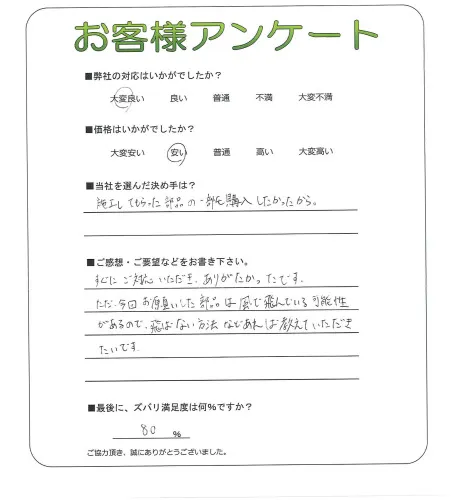 お客様アンケート
■弊社の対応はいかがでしたか？
大変良い 良い 普通 不満 大変不満
■価格はいかがでしたか？
大変安い 安い 普通 高い 大変高い
■当社を選んだ決め手は？
施工してもらった部品の一部を購入したかったから。
■ご感想・ご要望などをお書き下さい。
すぐにご対応いただき、ありがたかったです。
ただ今回お願いした部品は風で飛んでいる可能性
があるので、飛ばない方法などあれば教えていただき
たいです。
■最後に、ズバリ満足度は何%ですか？
80 %
ご協力頂き、誠にありがとうございました。